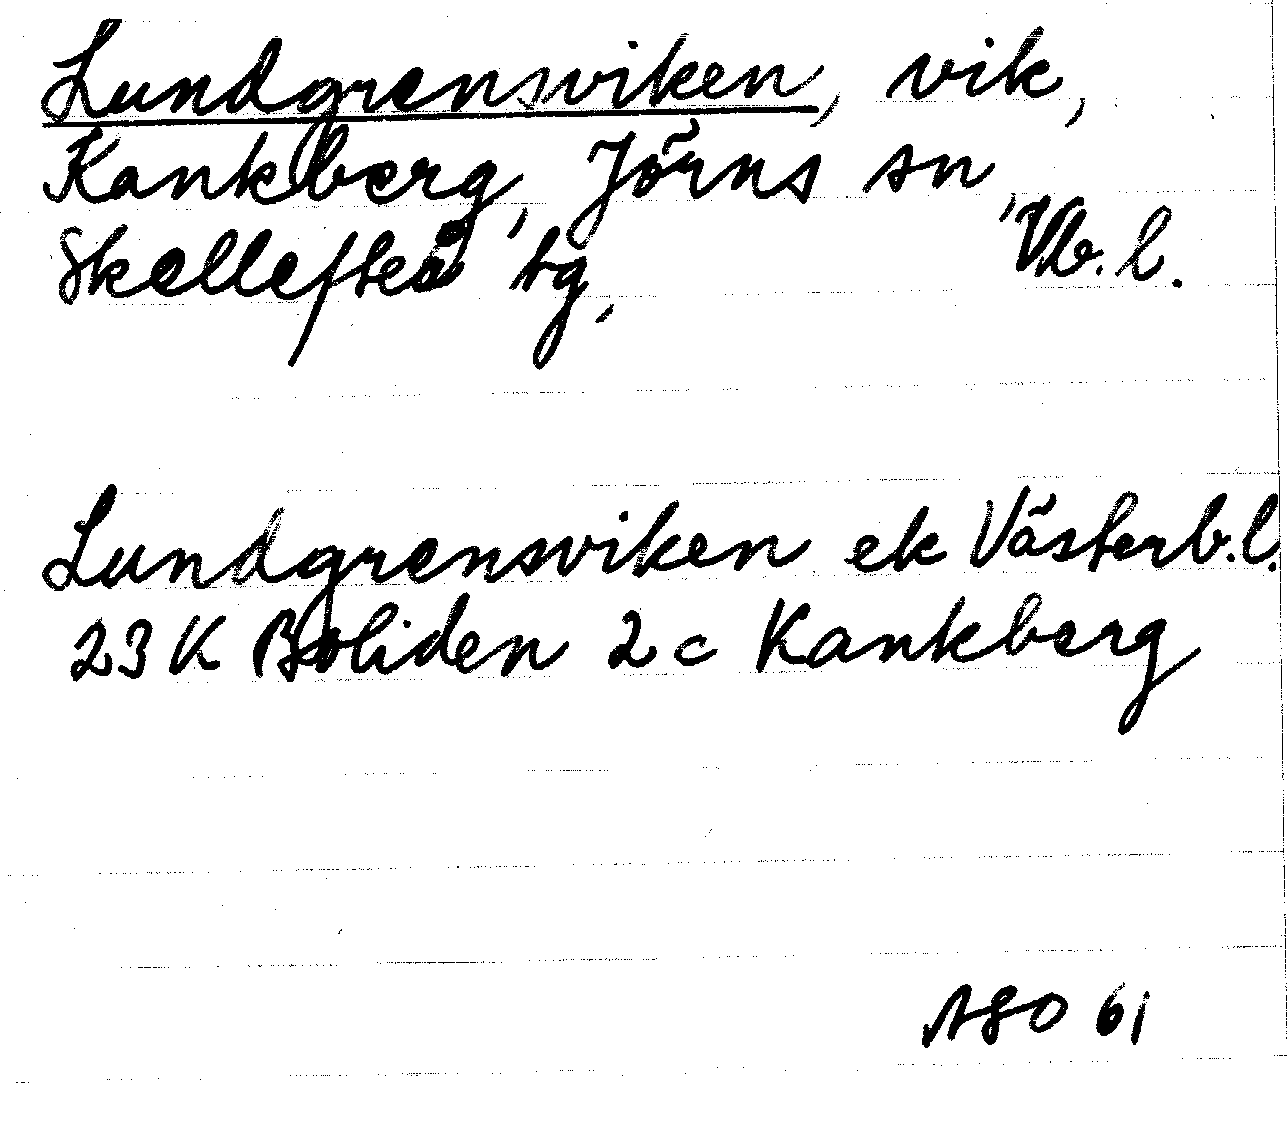 Lundgrensviken, vik,
Kankberg, Jörns sn,
Skellefteå tg, Vb. l.
Lundgrensviken ek Västerb.l.
23 K Boliden 2 c Kankberg
ASO 61